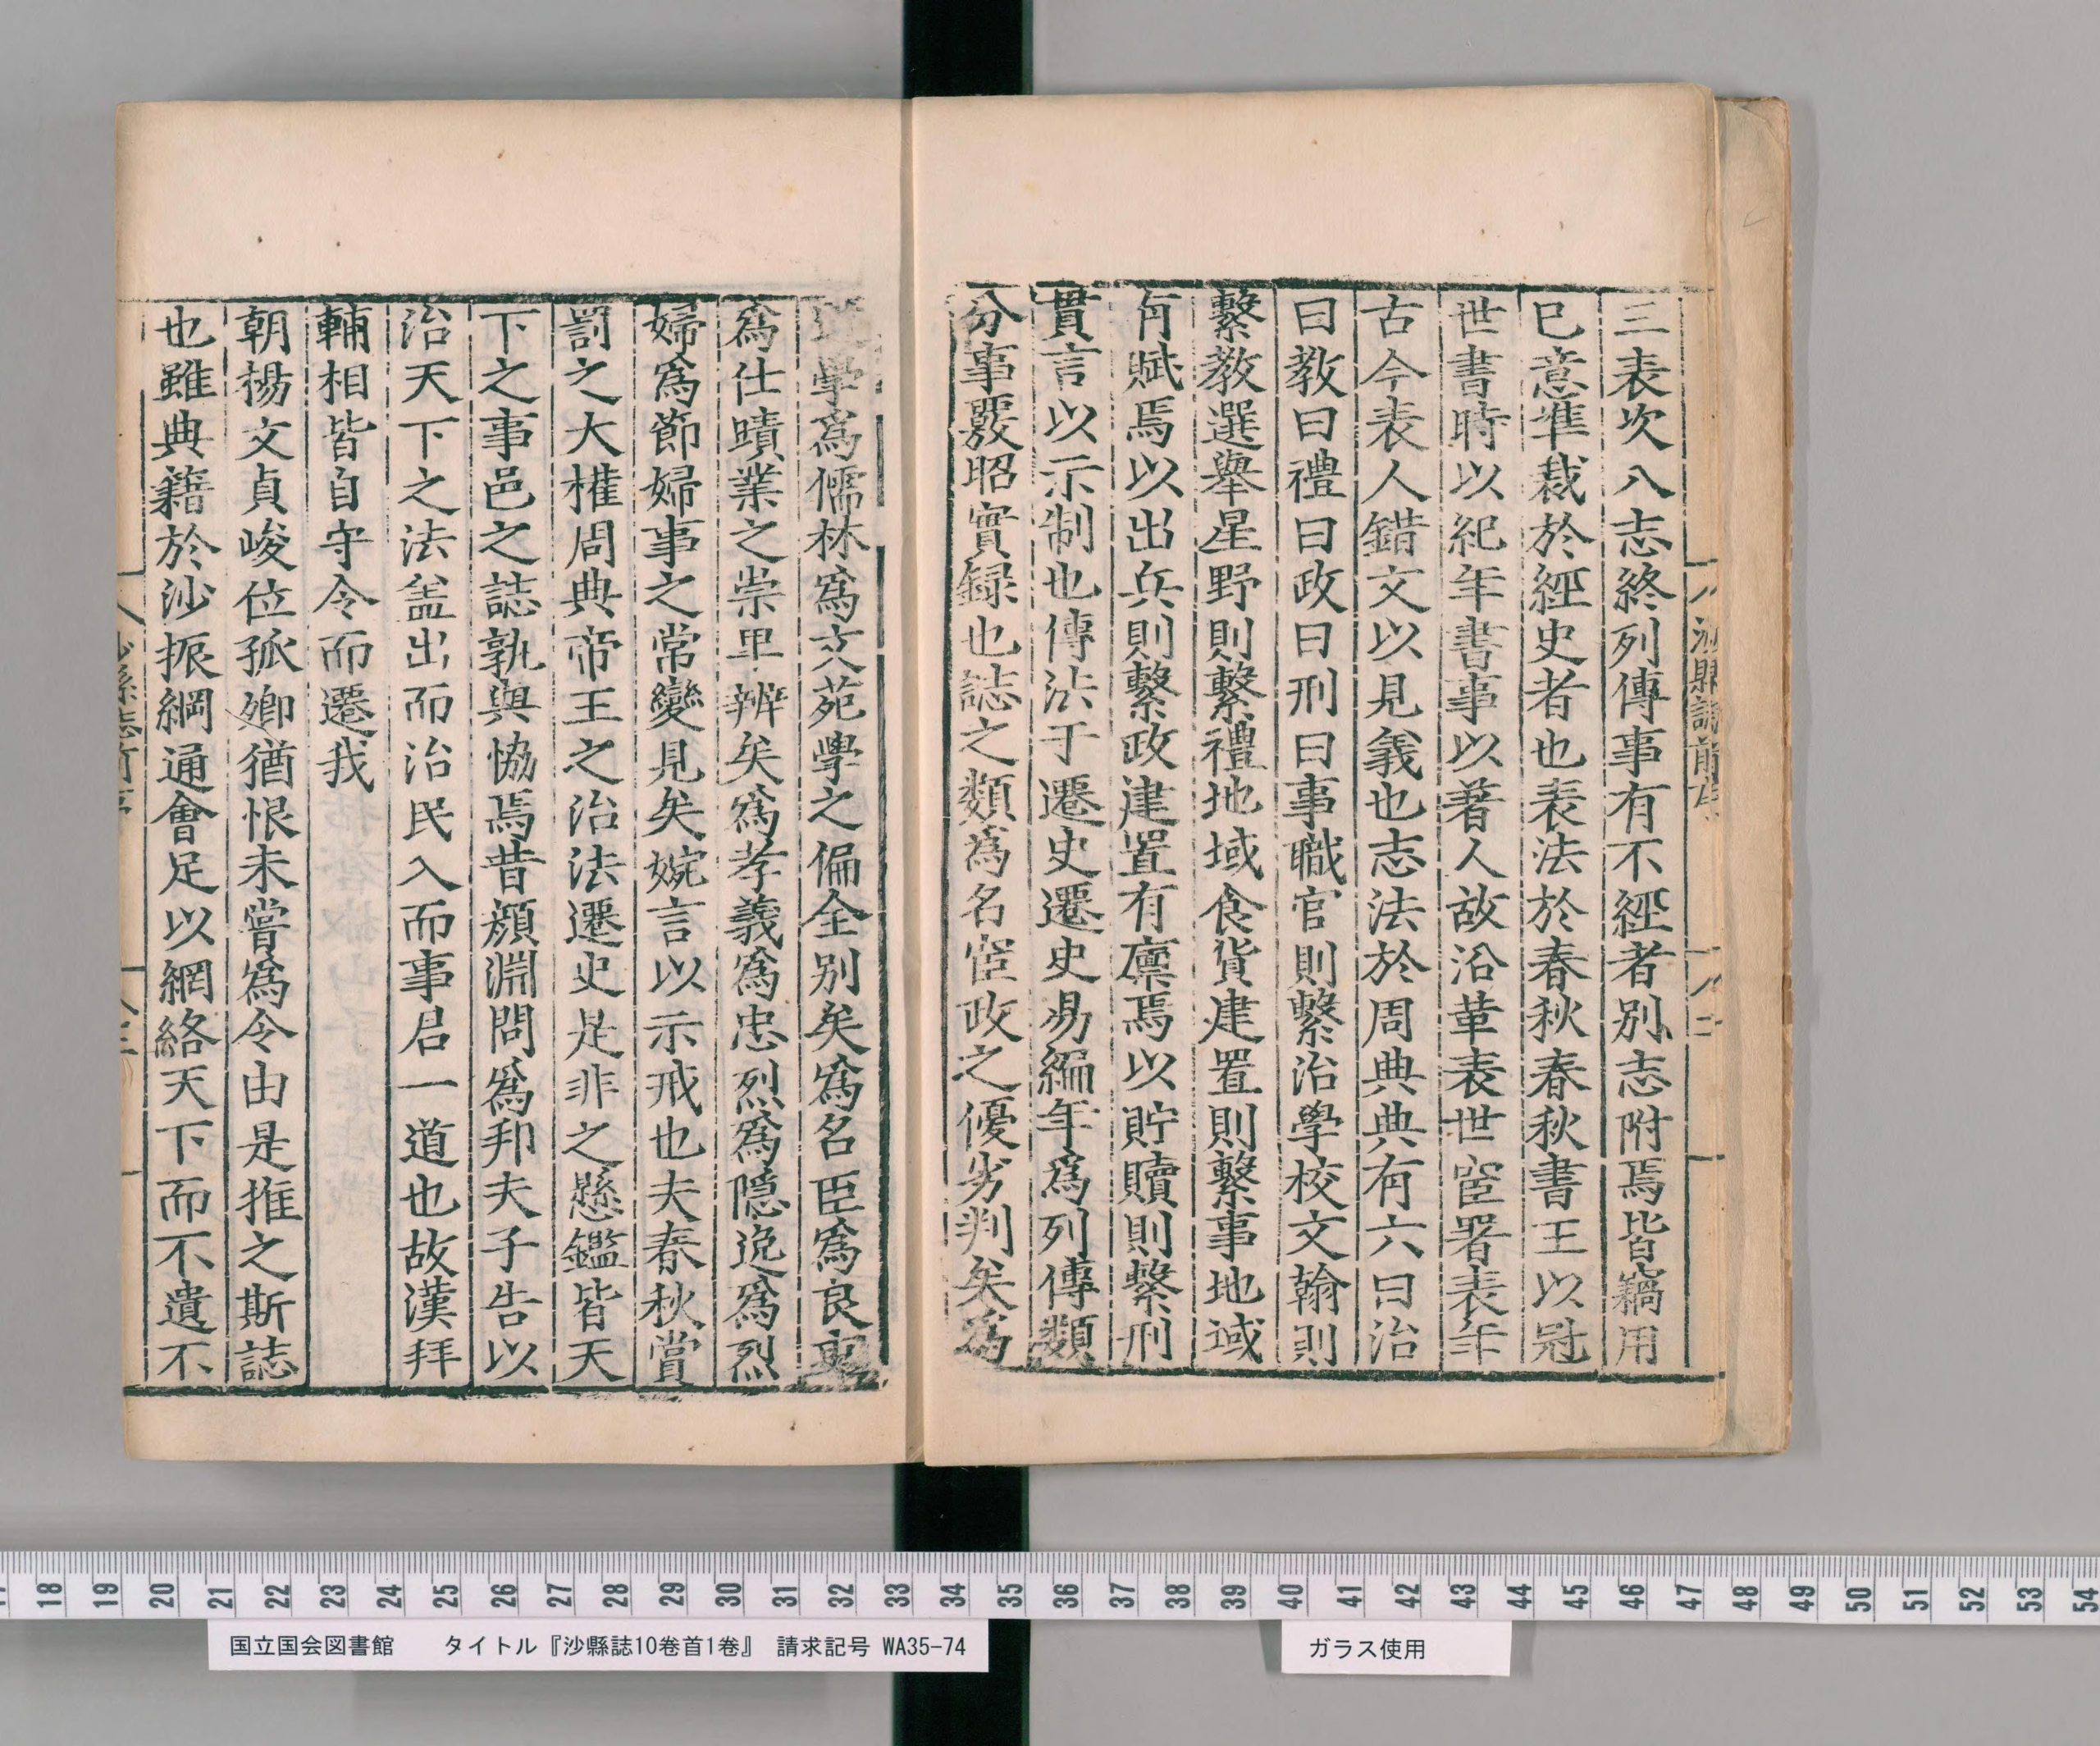 沙縣誌前序
二
三表次八志終列傳事有不經者別志附焉皆竊用
已意準裁於經史者也表法於春秋春秋書王以冠
世書時以紀年書事以著人故沿革表世宦署表年
古今表人錯文以見義也志法於周典典有六曰治
曰教曰禮曰政曰刑曰事職官則繫治學校文翰則
繫教選舉星野則繫禮地域食貨建置則繫事地域
有賦焉以出兵則繫政建置有廩焉以貯贖則繫刑
貫言以示制也傳法于遷史遷史易編年爲列傳類
分事覈昭實録也誌之類爲名宦政之優劣判矣爲
道學爲儒林爲文苑學之偏全別矣爲名臣爲良吏
爲仕蹟業之崇卑辨矣爲孝義爲忠烈爲隱逸爲烈
婦爲節婦事之常變見矣婉言以示戒也夫春秋賞
罰之大權周典帝王之治法遷史是非之懸鑑皆天
下之事邑之誌孰與恊焉昔顔淵問爲邦夫子告以
治天下之法盖出而治民入而事君一道也故漢拜
輔相皆自守令而遷我
朝楊文貞峻位孤卿猶恨未嘗爲令由是推之斯誌
也雖典籍於沙振綱通會足以網絡天下而不遺不
沙縣志前序
三
17 18 19 20 21 22 23 24 25 26 27 28 29 30 31 32 33 34 35 36 37 38 39 40 41 42 43 44 45 46 47 48 49 50 51 52 53 54
国立国会図書館 タイトル『沙縣誌10巻首1巻』 請求記号 WA35-74
ガラス使用